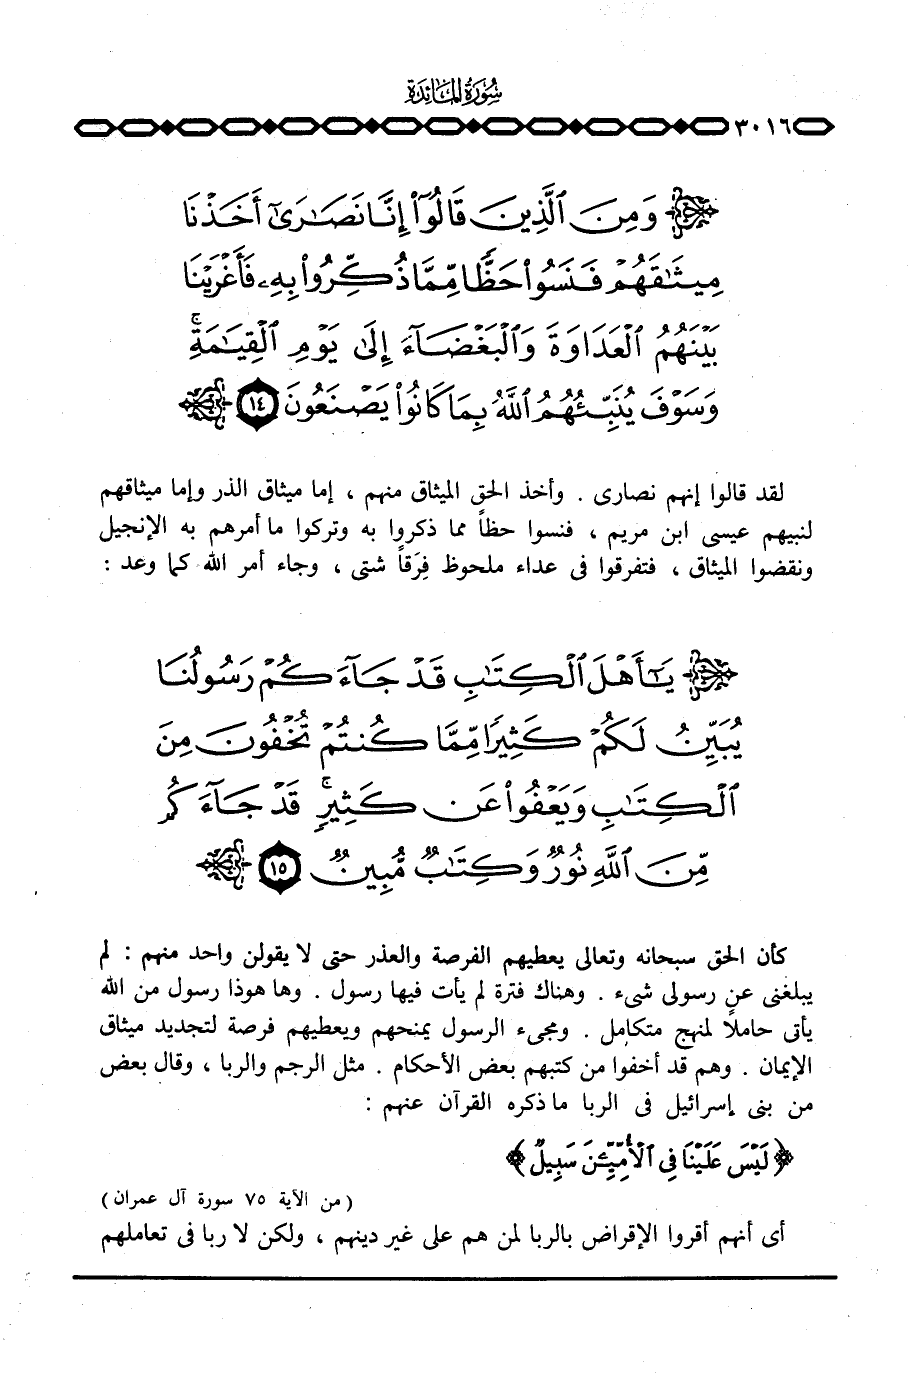 سُورَةُ المَائِدَة
٣٠١٦
وَمِنَ ٱلَّذِينَ قَالُوٓا۟ إِنَّا نَصَـٰرَىٰٓ أَخَذْنَا
مِيثَـٰقَهُمْ فَنَسُوا۟ حَظًّا مِّمَّا ذُكِّرُوا۟ بِهِۦ فَأَغْرَيْنَا
بَيْنَهُمُ ٱلْعَدَاوَةَ وَٱلْبَغْضَآءَ إِلَىٰ يَوْمِ ٱلْقِيَـٰمَةِ ۚ
وَسَوْفَ يُنَبِّئُهُمُ ٱللَّهُ بِمَا كَانُوا۟ يَصْنَعُونَ ١٤
لقد قالوا إنهم نصارى . وأخذ الحق الميثاق منهم ، إما ميثاق الذر وإما ميثاقهم
لنبيهم عيسى ابن مريم ، فنسوا حظاً مما ذكروا به وتركوا ما أمرهم به الإنجيل
ونقضوا الميثاق ، فتفرقوا فى عداء ملحوظ فِرَقاً شتى ، وجاء أمر الله كما وعد :
يَـٰٓأَهْلَ ٱلْكِتَـٰبِ قَدْ جَآءَكُمْ رَسُولُنَا
يُبَيِّنُ لَكُمْ كَثِيرًا مِّمَّا كُنتُمْ تُخْفُونَ مِنَ
ٱلْكِتَـٰبِ وَيَعْفُوا۟ عَن كَثِيرٍ ۚ قَدْ جَآءَكُم
مِّنَ ٱللَّهِ نُورٌ وَكِتَـٰبٌ مُّبِينٌ ١٥
كأن الحق سبحانه وتعالى يعطيهم الفرصة والعذر حتى لا يقولن واحد منهم : لم
يبلغنى عن رسولى شىء . وهناك فترة لم يأت فيها رسول . وها هوذا رسول من الله
يأتى حاملاً لمنهج متكامل . ومجىء الرسول يمنحهم ويعطيهم فرصة لتجديد ميثاق
الإيمان . وهم قد أخفوا من كتبهم بعض الأحكام . مثل الرجم والربا ، وقال بعض
من بنى إسرائيل فى الربا ما ذكره القرآن عنهم :
﴿ لَيْسَ عَلَيْنَا فِى ٱلْأُمِّيِّـۧنَ سَبِيلٌ ﴾
( من الآية ٧٥ سورة آل عمران )
أى أنهم أقروا الإقراض بالربا لمن هم على غير دينهم ، ولكن لا ربا فى تعاملهم